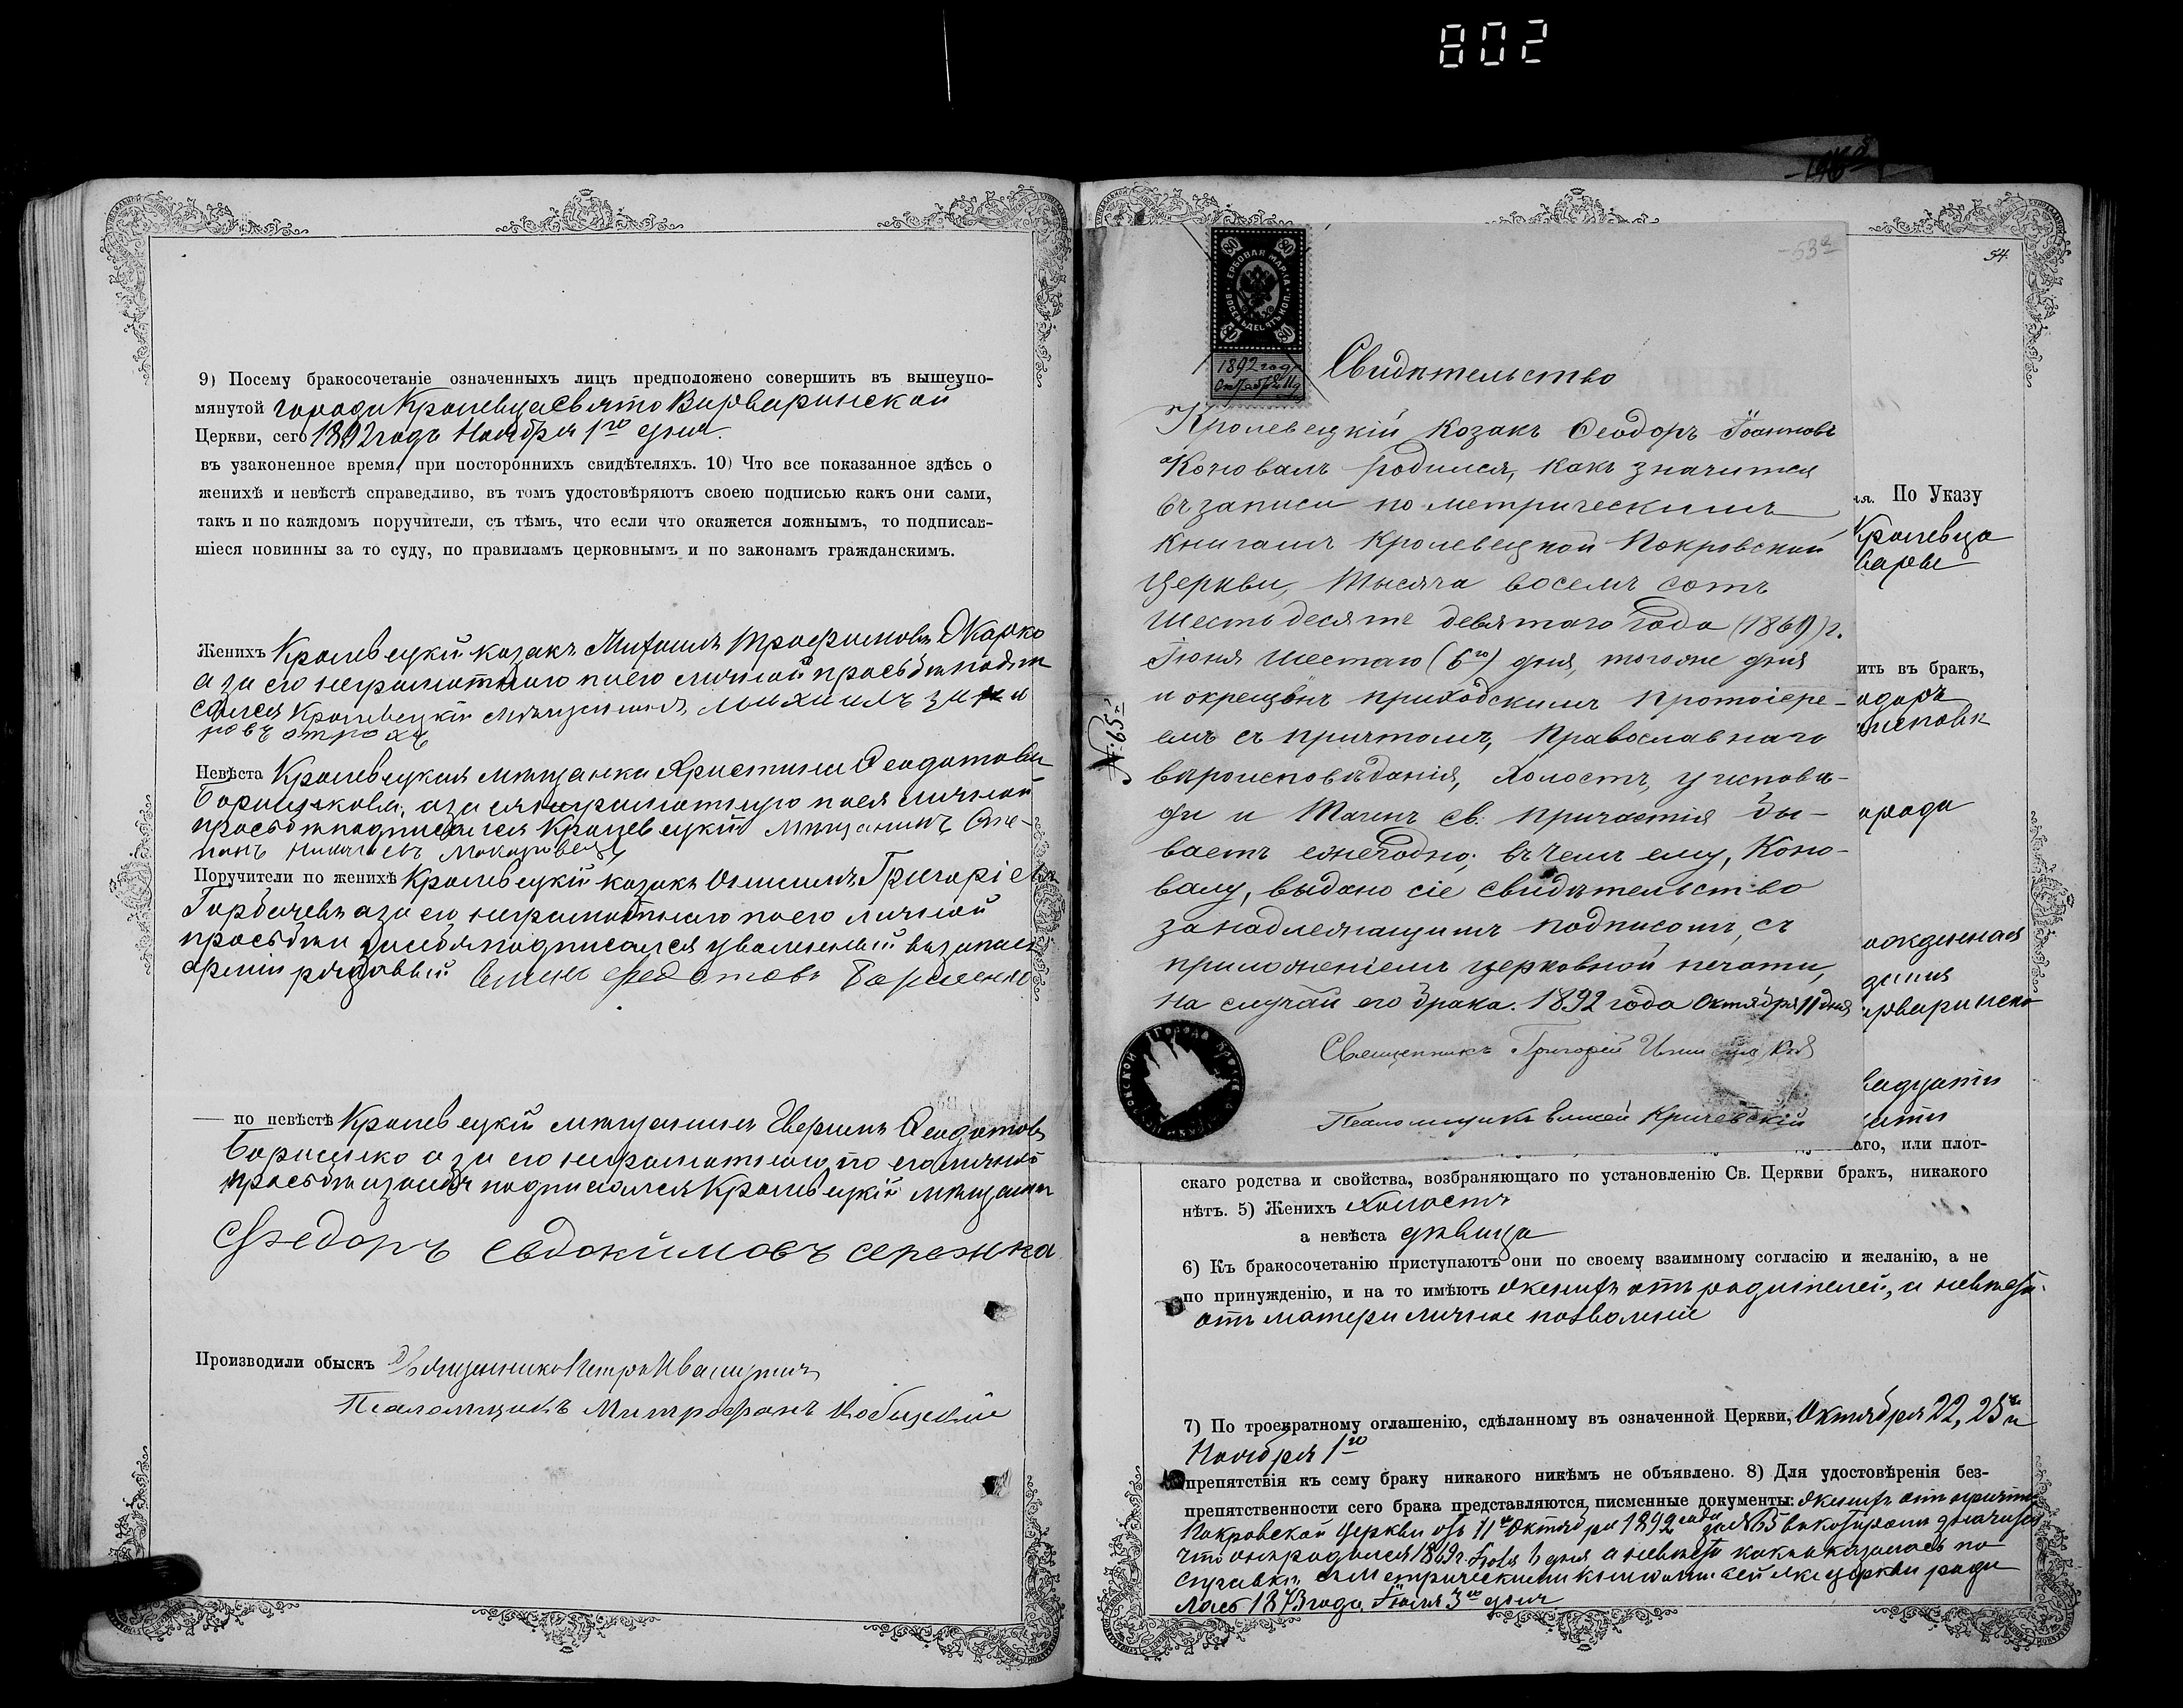 802
9) Посему бракосочетаніе означенныхъ лицъ предположено совершить въ вышеупо-
мянутой города Кролевца Свято Варваринской
Церкви, сего 1892 года Ноября 1го дня.
въ узаконенное время, при постороннихъ свидѣтеляхъ. 10) Что все показанное здѣсь о
женихѣ и невѣстѣ справедливо, въ томъ удостовѣряютъ своею подписью какъ они сами,
такъ и по каждомъ поручители, съ тѣмъ, что если что окажется ложнымъ, то подписав-
шіеся повинны за то суду, по правиламъ церковнымъ и по законамъ гражданскимъ.
Женихъ Кролевецкій казакъ Михаилъ Трофимовъ
а за его неграмотнаго по его личной просьбѣ подпи
сался Кролевецкій мѣщанинъ
Невѣста Кролевецкая мѣщанка Христина Феодотова
Борисенкова, а за ея неграмотную по ея личной
просьбѣ подписался Кролевецкій мѣщанинъ Сте-
панъ
Поручители по женихѣ Кролевецкій казакъ Григоріевъ
Горбачевъ а за его неграмотнаго по его личной
просьбѣ подписался уволенный въ запасъ
арміи рядовый Федотовъ Борисенко
— по невѣстѣ Кролевецкій мѣщанинъ Феодотовъ
Борисенко а за его неграмотнаго, по его личной
просьбѣ подписался Кролевецкій мѣщанинъ
Федоръ Евдокимовъ
Производили обыскъ Священникъ Петръ
Псаломщикъ Митрофанъ
54.
-53а
ГЕРБОВАЯ МАРКА
ВОСЕМЬДЕСЯТЪ КОП.
80 80 80 80
1892 года
Октября 11 д
Свидѣтельство
Кролевецкій Козакъ Феодоръ Іоанновъ
Коновалъ родился, какъ значится
въ записи по метрическимъ
книгамъ Кролевецкой Покровской
Церкви, тысяча восемь сотъ
шестьдесятъ девятаго года (1869) г.
Іюня шестаго (6го) дня, того же дня
и окрещенъ приходскимъ протоіере-
емъ съ причтомъ, Православнаго
вѣроисповѣданія, холостъ, у исповѣ-
ди и Таинъ Св. Причастія бы-
ваетъ ежегодно; въ чемъ ему, Коно-
валу, выдано сіе свидѣтельство
за надлежащимъ подписомъ, съ
приложеніемъ церковной печати,
на случай его брака. 1892 года Октября 11 дня
№ 65й
Священникъ Григорій
Псаломщикъ Кричевскій
По Указу
Кролевца
ить въ бракъ,
аго, или плот-
скаго родства и свойства, возбраняющаго по установленію Св. Церкви бракъ, никакого
нѣтъ. 5) Женихъ холостъ
а невѣста дѣвица
6) Къ бракосочетанію приступаютъ они по своему взаимному согласію и желанію, а не
по принужденію, и на то имѣютъ женихъ отъ родителей, а невѣста
отъ матери личное позволеніе
7) По троекратному оглашенію, сдѣланному въ означенной Церкви, Октября 22, 25 и
Ноября 1го
препятствія къ сему браку никакого никѣмъ не объявлено. 8) Для удостовѣренія без-
препятственности сего брака представляются писменные документы: женихъ отъ причта
Покровской Церкви отъ 11 Октября 1892 года за № 65 въ которомъ значится
что онъ родился 1869 г. Іюня 6 дня а невѣста какъ оказалось по
справкѣ съ метрическими книгами сей же церкви роди
лась 1873 года Іюля 3го дня